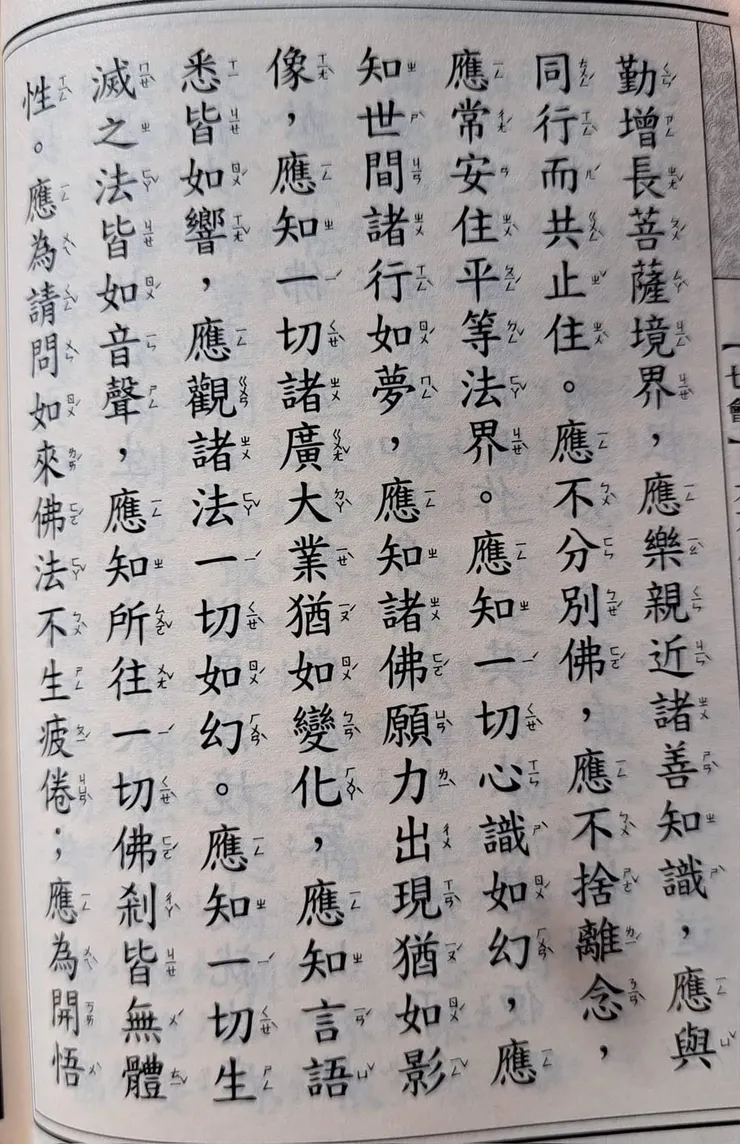 勤增長菩薩境界，應樂親近諸善知識，應與
同行而共止住。應不分別佛，應不捨離念，
應常安住平等法界。應知一切心識如幻，應
知世間諸行如夢，應知諸佛願力出現猶如影
像，應知一切諸廣大業猶如變化，應知言語
悉皆如響，應觀諸法一切如幻。應知一切生
滅之法皆如音聲，應知所往一切佛剎皆無體
性。應為請問如來佛法不生疲倦；應為開悟